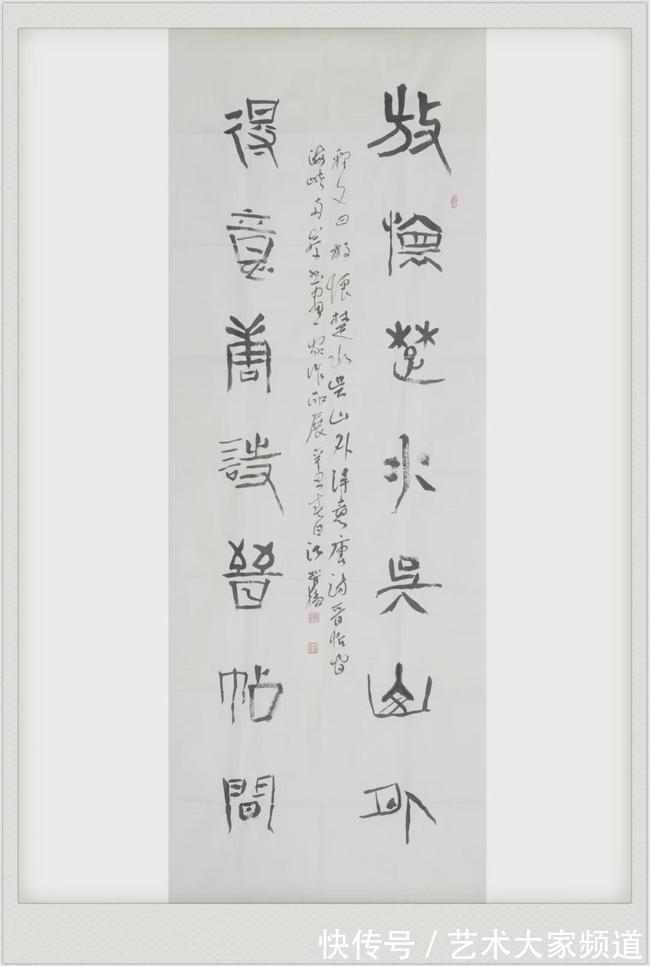 放懷楚水吳山外
得意唐詩晉帖間
释文曰放懷楚水吳山外得意唐詩晉帖間
海峽两岸書畫家作品展辛丑春日
快传号 / 艺术大家频道